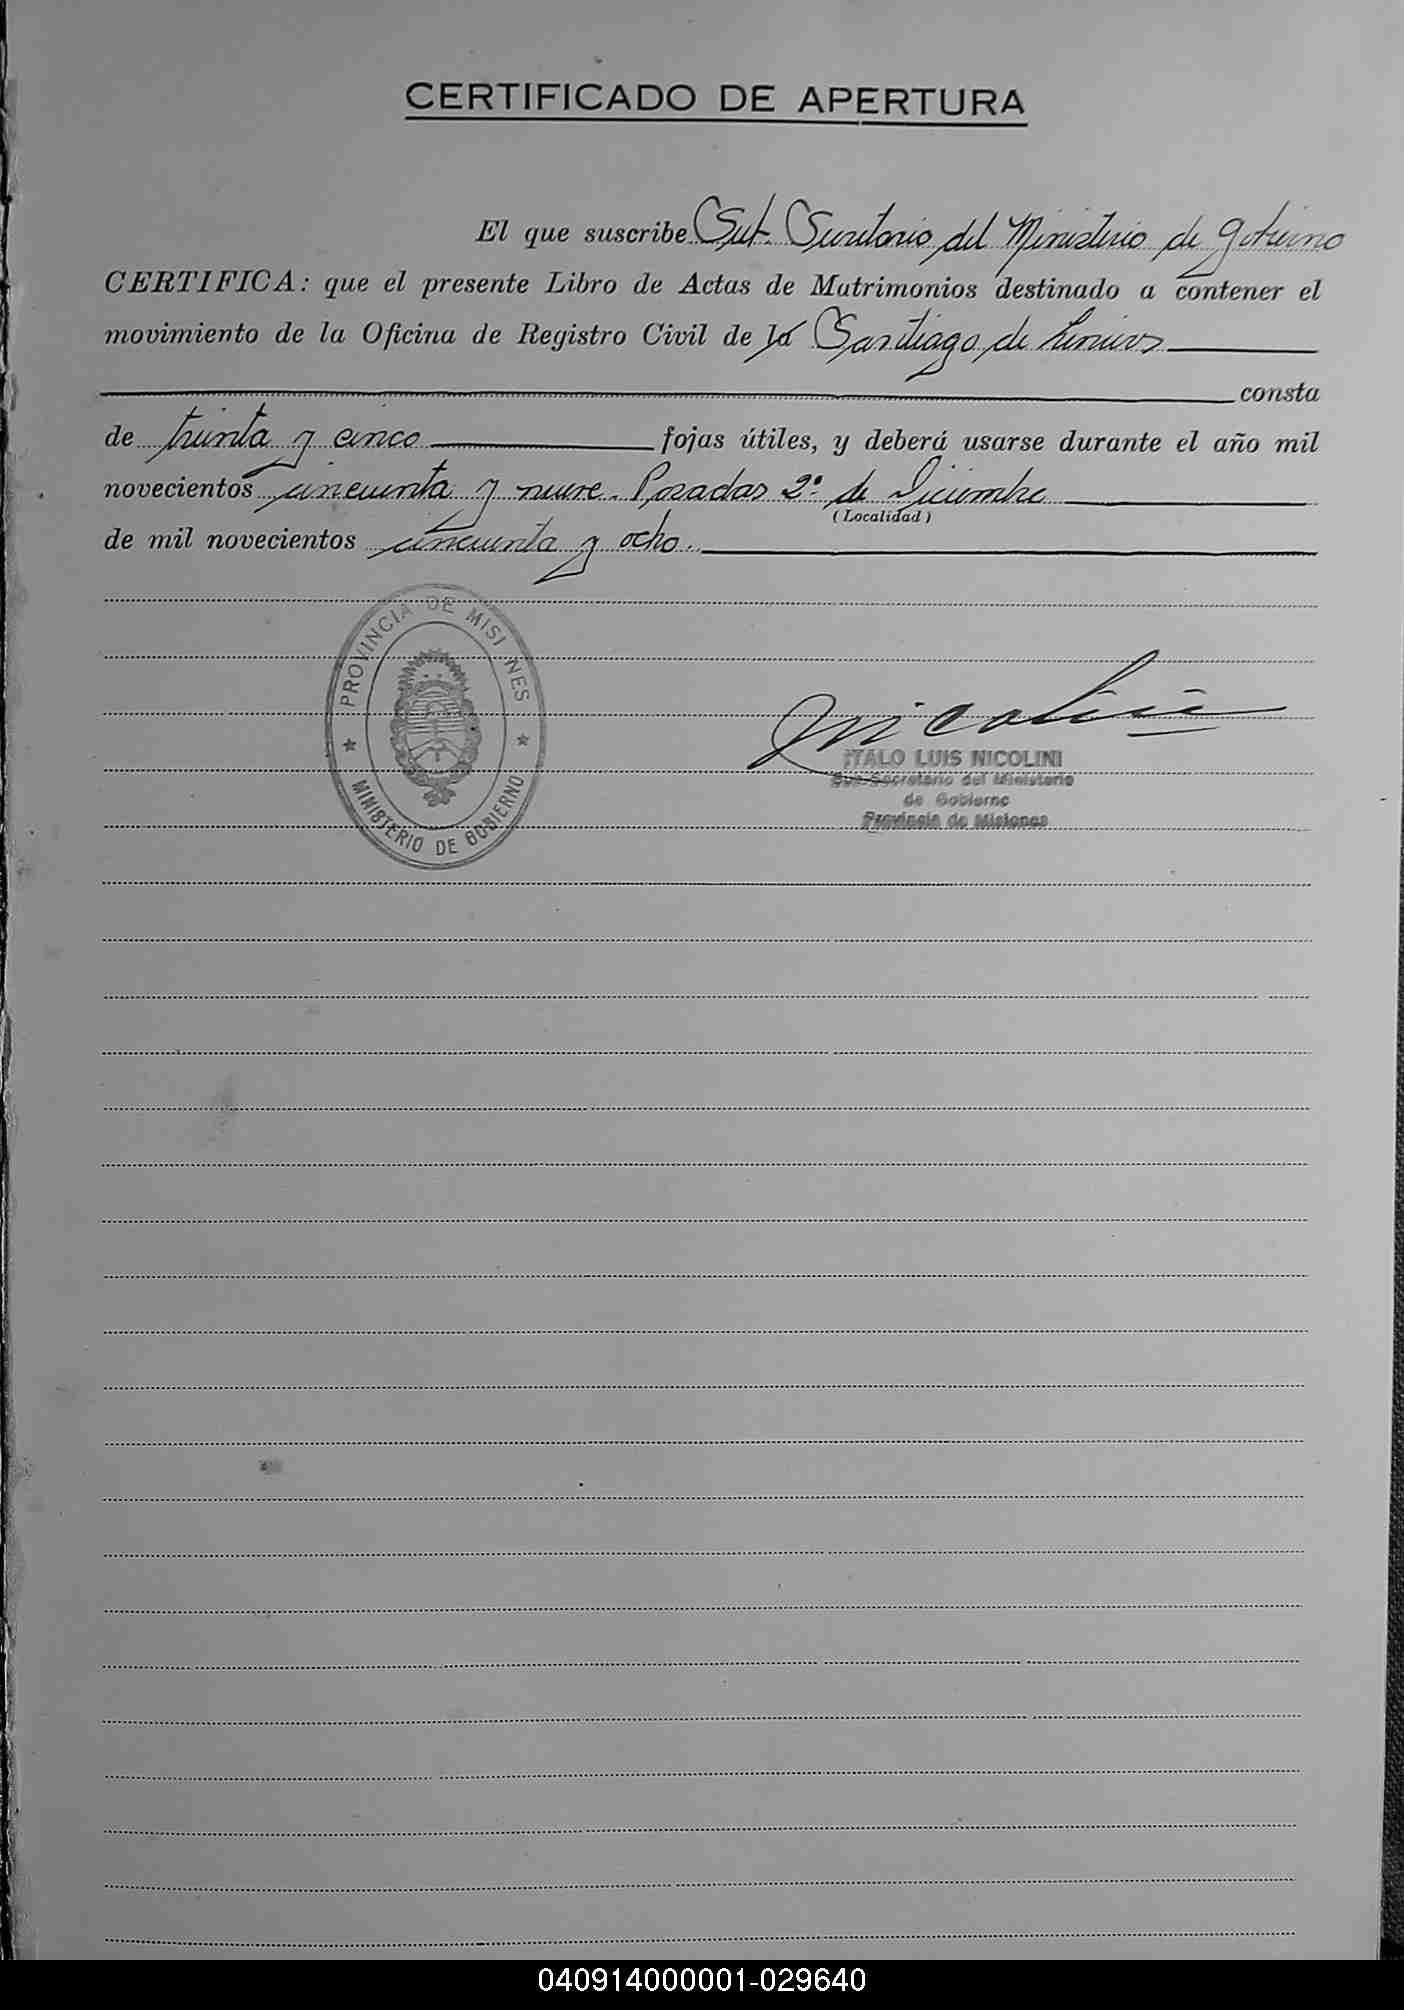 CERTIFICADO DE APERTURA
El que suscribe Sub. Secretario del Ministerio de Gobierno
CERTIFICA: que el presente Libro de Actas de Matrimonios destinado a contener el
movimiento de la Oficina de Registro Civil de la Santiago de Liniers
consta
de treinta y cinco fojas útiles, y deberá usarse durante el año mil
novecientos cincuenta y nueve. Posadas 2º de Diciembre
(Localidad)
de mil novecientos cincuenta y ocho.
PROVINCIA DE MISI NES
MINISTERIO DE GOBIERNO
Nicolini
ITALO LUIS NICOLINI
Sub-Secretario del Ministerio
de Gobierno
Provincia de Misiones
040914000001-029640